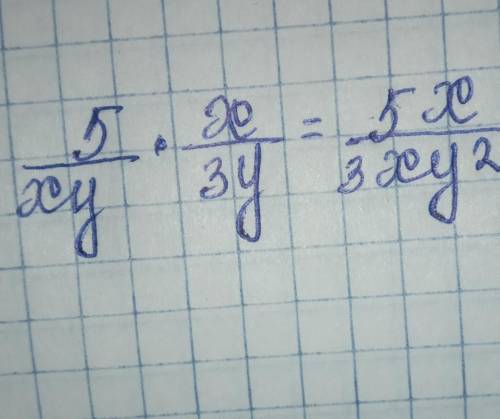 5/xy · x/3y = 5x/3xy²